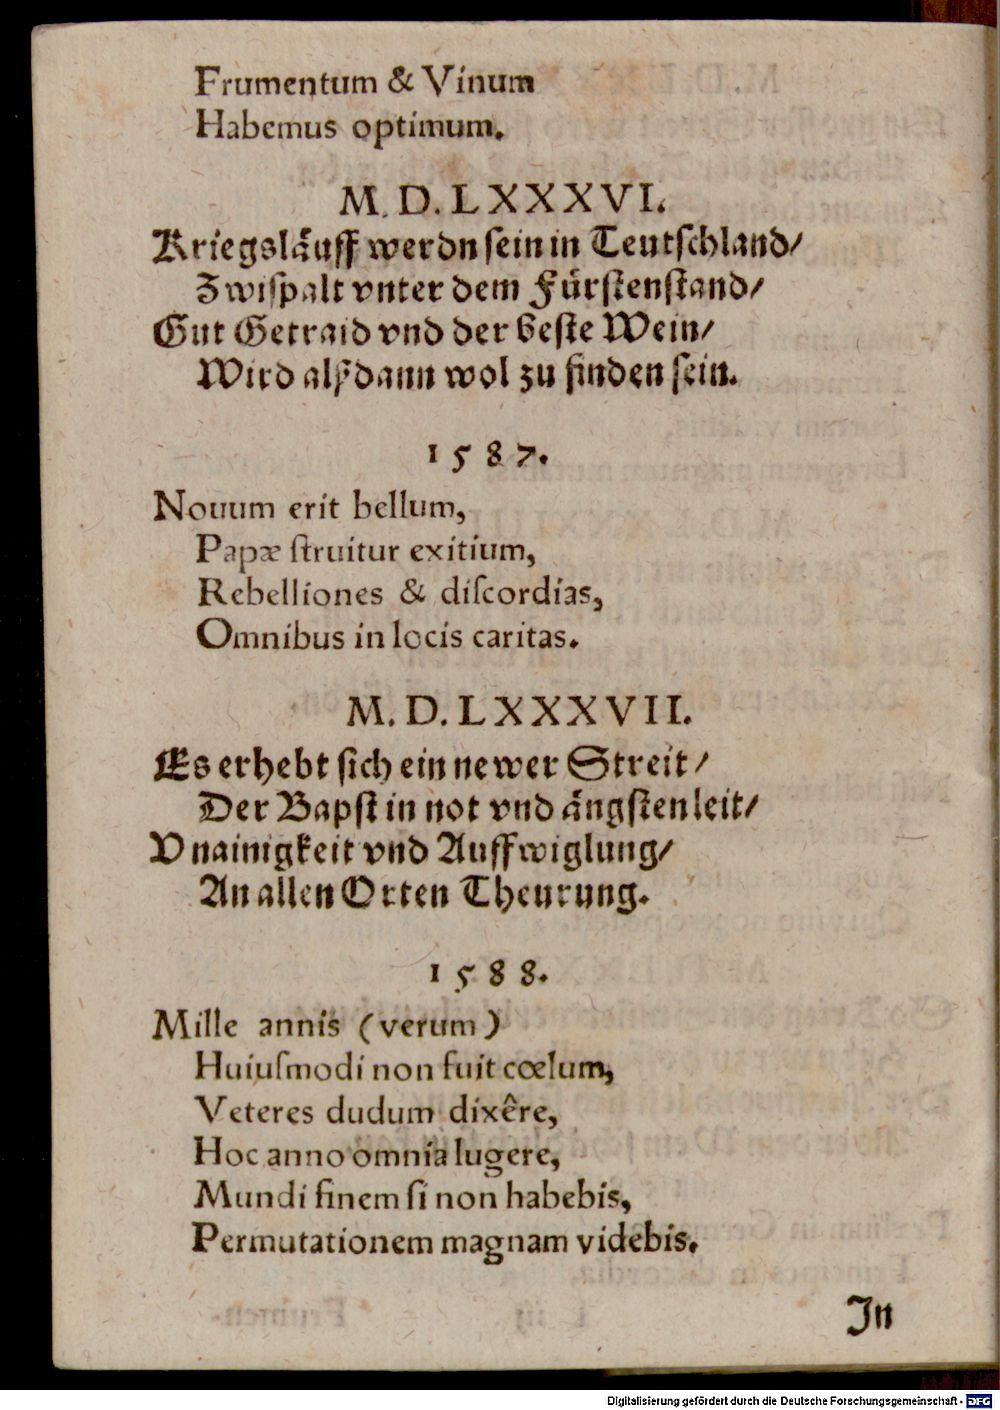 Frumentum & Vinum
Habemus optimum.
M. D. LXXXVI.
Kriegsläuff werdn ſein in Teutſchland/
Zwiſpalt vnter dem Fürſtenſtand/
Gut Getraid vnd der beſte Wein/
Wird alßdann wol zu finden ſein.
1587.
Nouum erit bellum,
Papæ ſtruitur exitium,
Rebelliones & diſcordias,
Omnibus in locis caritas.
M. D. LXXXVII.
Es erhebt ſich ein newer Streit/
Der Bapſt in not vnd ängſten leit/
Vnainigkeit vnd Auffwiglung/
An allen Orten Theurung.
1588.
Mille annis (verum)
Huiuſmodi non fuit cœlum,
Veteres dudum dixêre,
Hoc anno omnia lugere,
Mundi finem ſi non habebis,
Permutationem magnam videbis.
In
Digitalisierung gefördert durch die Deutsche Forschungsgemeinschaft - DFG